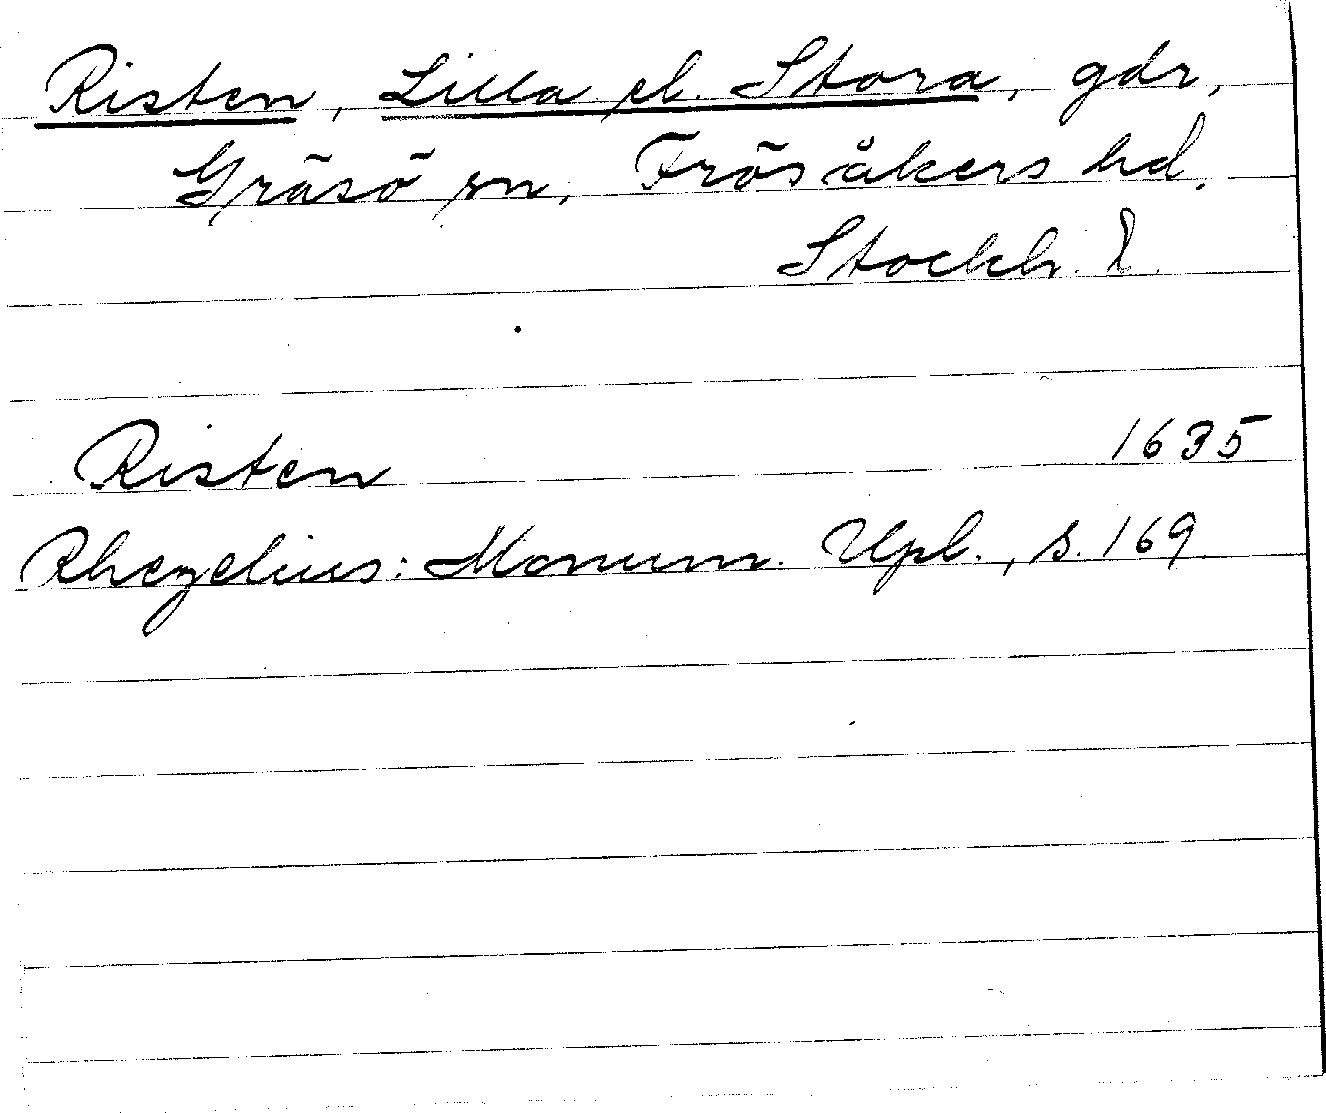 Risten, Lilla el. Stora, gdr,
Gräsö sn, Frösåkers hd.
Stockh. l.
Risten 1635
Rhezelius: Monum. Upl., s. 169